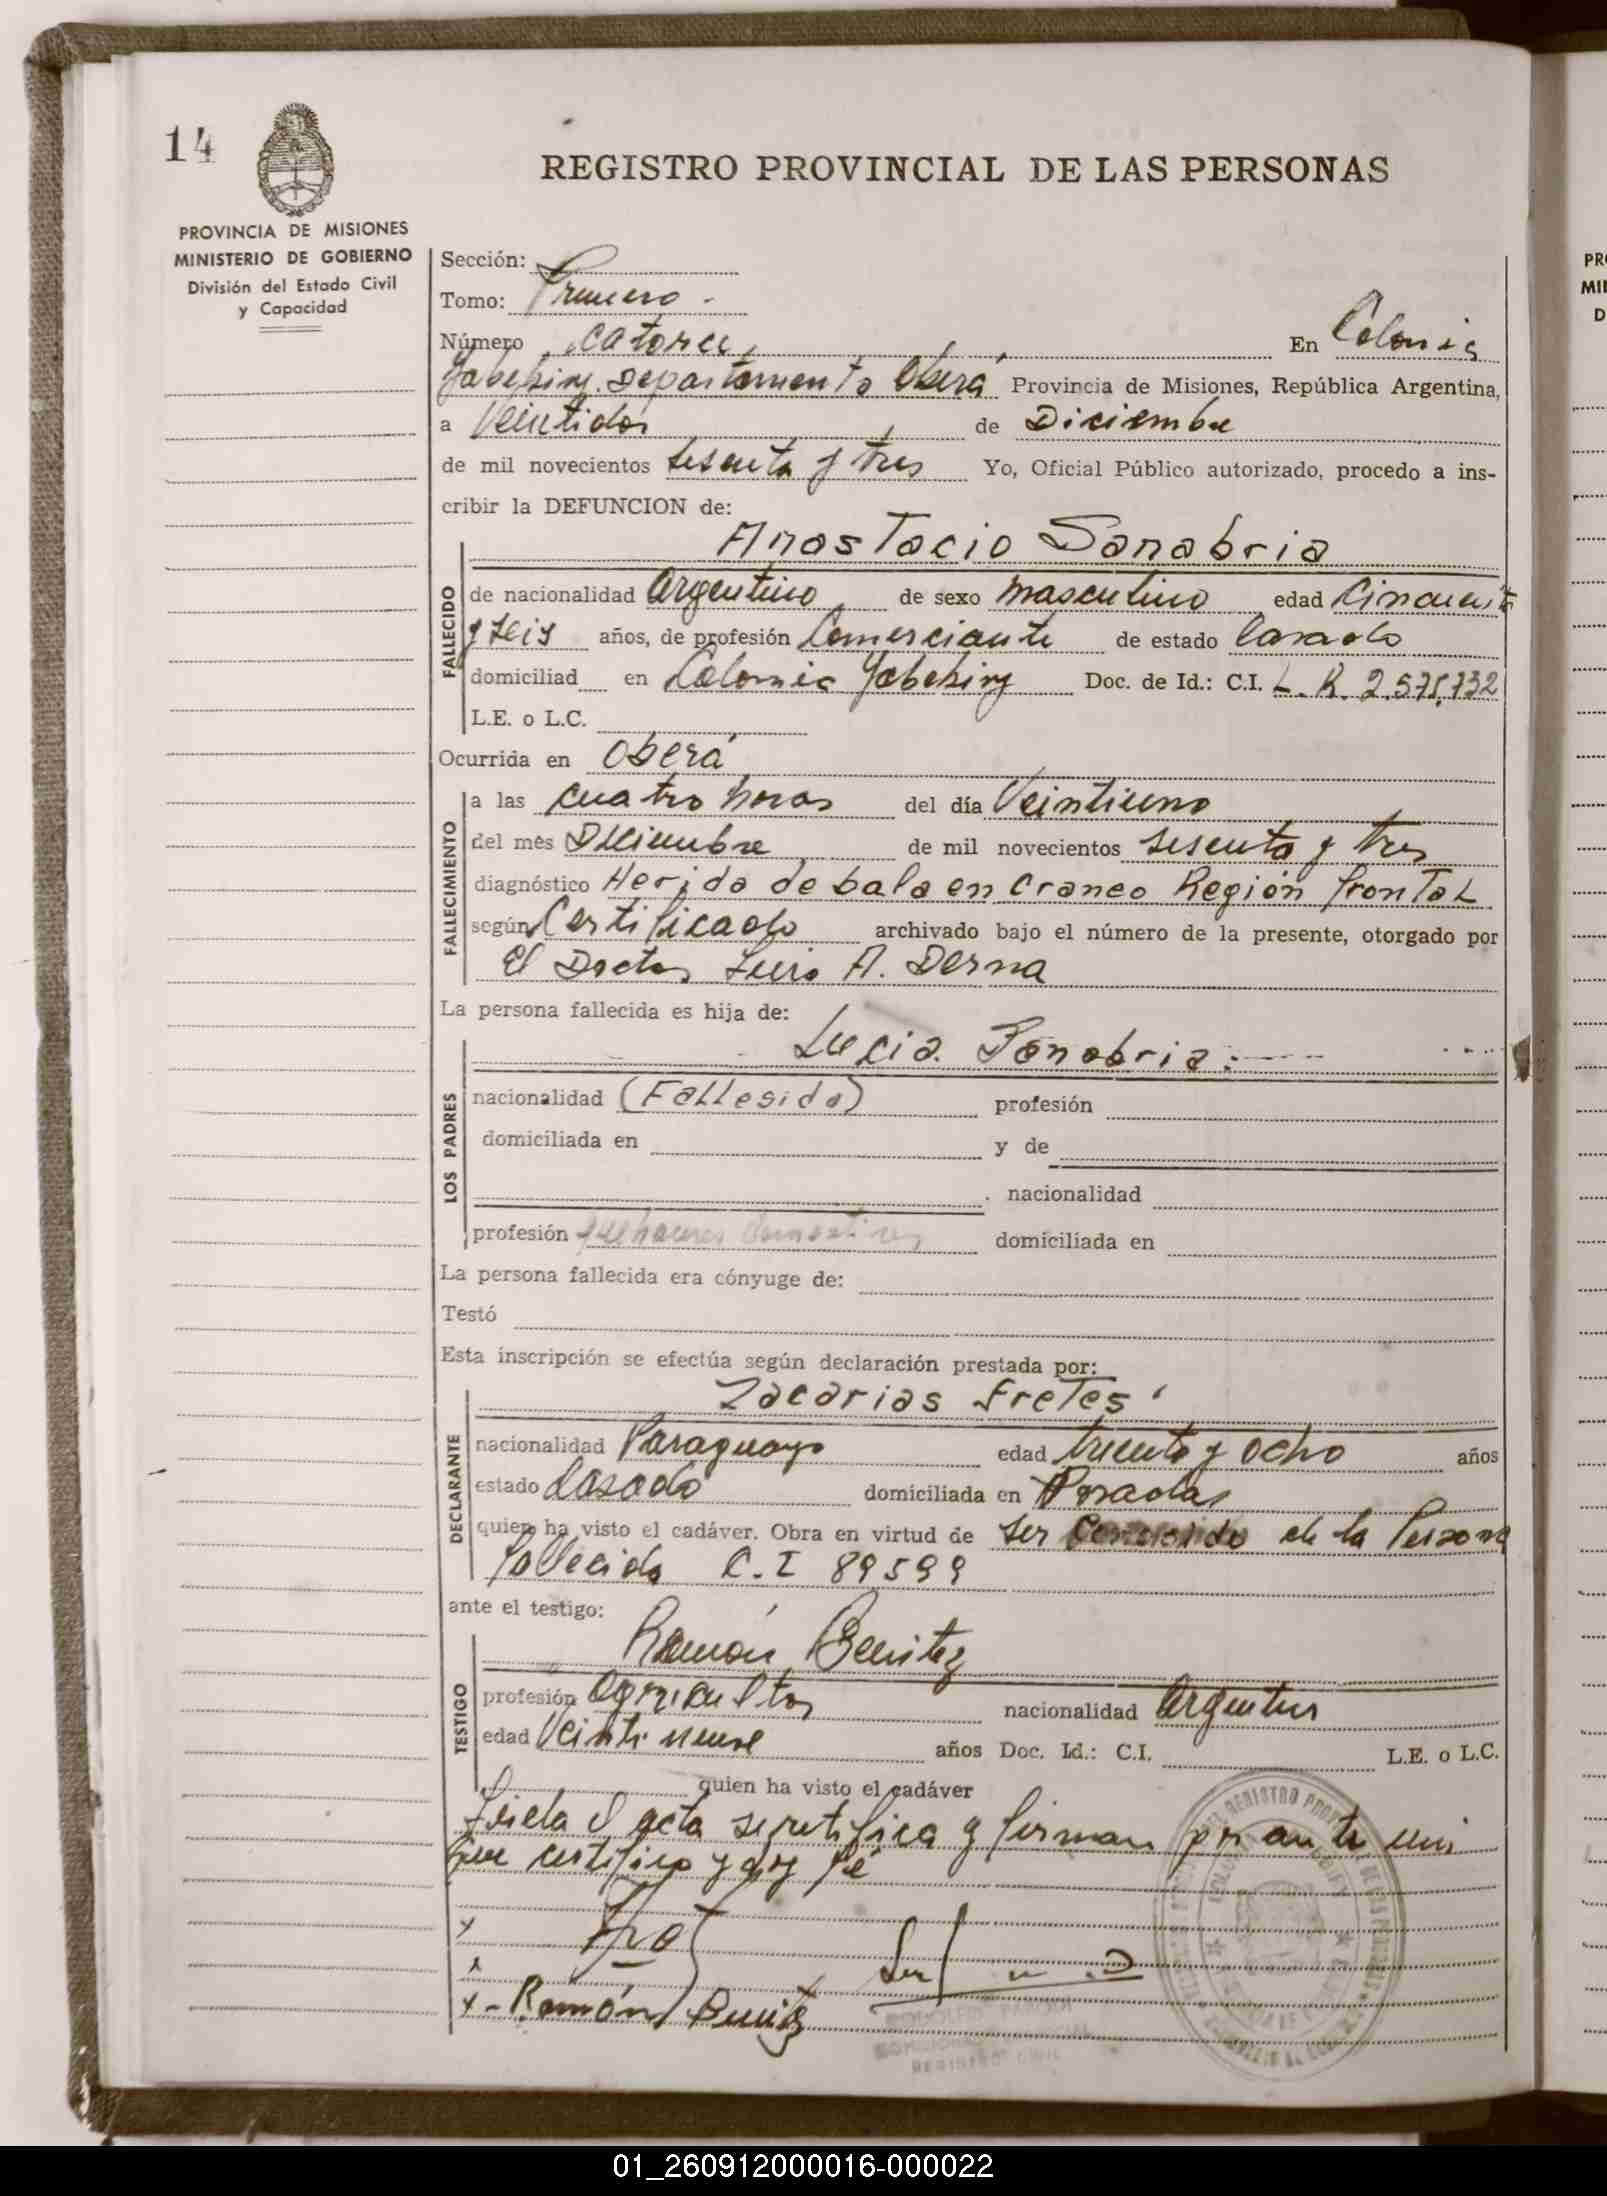 14
REGISTRO PROVINCIAL DE LAS PERSONAS
PROVINCIA DE MISIONES
MINISTERIO DE GOBIERNO
División del Estado Civil
y Capacidad
Sección:
Tomo: Primero.
Número catorce En Colonia
Yabebiry Departamento Oberá Provincia de Misiones, República Argentina,
a Veintidos de Diciembre
de mil novecientos sesenta y tres Yo, Oficial Público autorizado, procedo a ins-
cribir la DEFUNCION de:
Anastacio Sanabria
FALLECIDO
de nacionalidad Argentino de sexo masculino edad Cincuenta
y seis años, de profesión Comerciante de estado Casado
domiciliad en Colonia Yabebiry Doc. de Id.: C.I. 2.575.732
L.E. o L.C.
Ocurrida en Oberá
FALLECIMIENTO
a las cuatro horas del día Veintiuno
del mes Diciembre de mil novecientos sesenta y tres
diagnóstico Herida de bala en craneo Región frontal
según Certificado archivado bajo el número de la presente, otorgado por
El Doctor Luis A. Derna
La persona fallecida es hija de:
Lucia Sanabria.
LOS PADRES
nacionalidad (Fallesida) profesión
domiciliada en y de
nacionalidad
profesión quehaceres domesticos domiciliada en
La persona fallecida era cónyuge de:
Testó
Esta inscripción se efectúa según declaración prestada por:
Zacarias Fretes
DECLARANTE
nacionalidad Paraguayo edad treinta y ocho años
estado Casado domiciliada en Posadas
quien ha visto el cadáver. Obra en virtud de ser Conosido de la Persona
fallecida C.I 89599
ante el testigo:
Ramón Benitez
TESTIGO
profesión agricultor nacionalidad Argentino
edad Veintinueve años Doc. Id.: C.I. L.E. o L.C.
quien ha visto el cadáver
Leida el acta se ratifica y firman por ante mi
que certifico y doy fé
x
x
x - Ramón Benitez
REGISTRO CIVIL
01_260912000016-000022